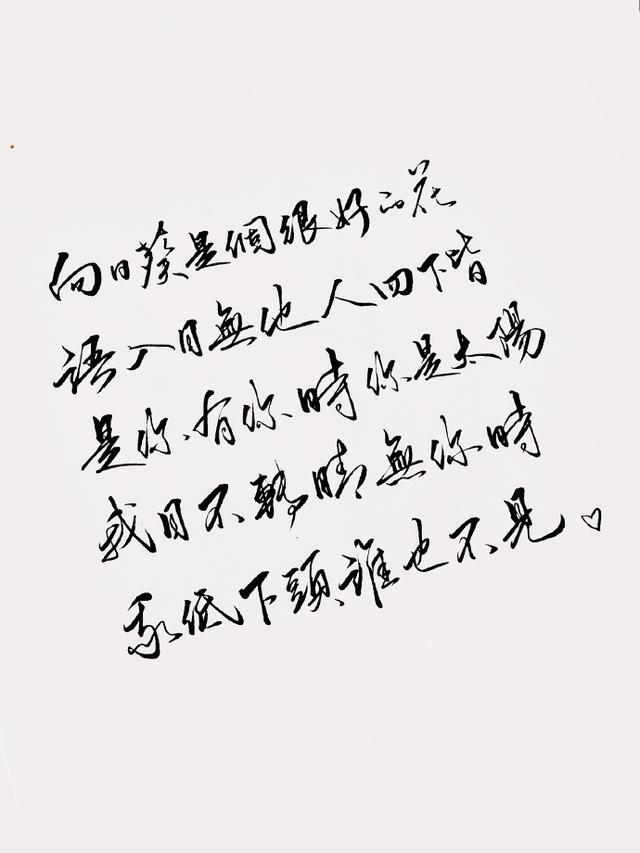 向日葵是個很好的花
語入目無他人四下皆
是你、有你時你是太陽
我目不轉睛無你時
我低下頭、誰也不見。♡